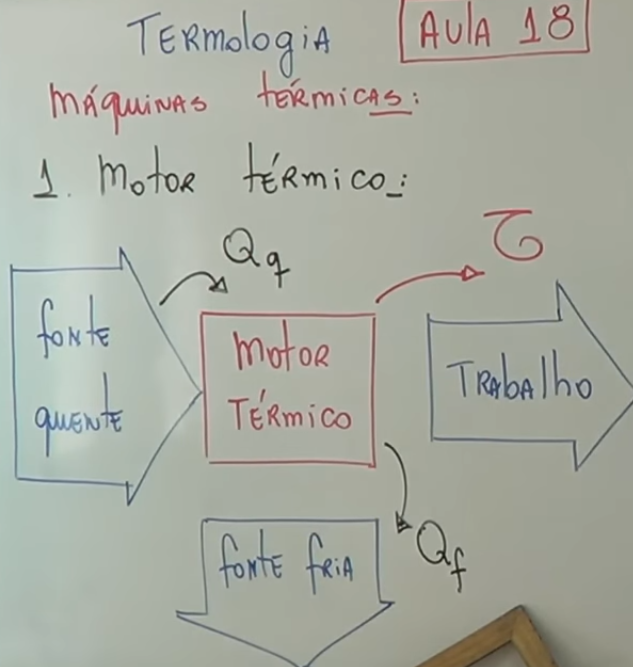 Termologia
Aula 18
Máquinas térmicas:
1. Motor térmico:
Qq
τ
fonte
quente
Motor
Térmico
Trabalho
Qf
fonte fria